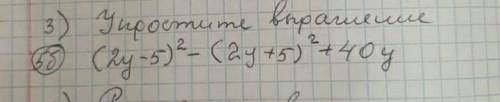 3) Упростите выражение
(2y-5)²-(2y+5)²+40y